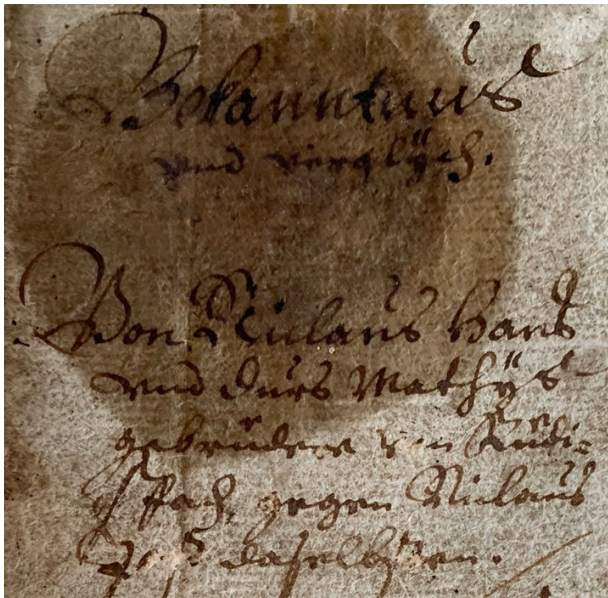 Bekanntnus
vnd verglÿch.
Von Niclaus Hans
vnd Durs Mathÿs
gebrüdere von Rüdi=
spach, gegen Niclaus
daselbsten.